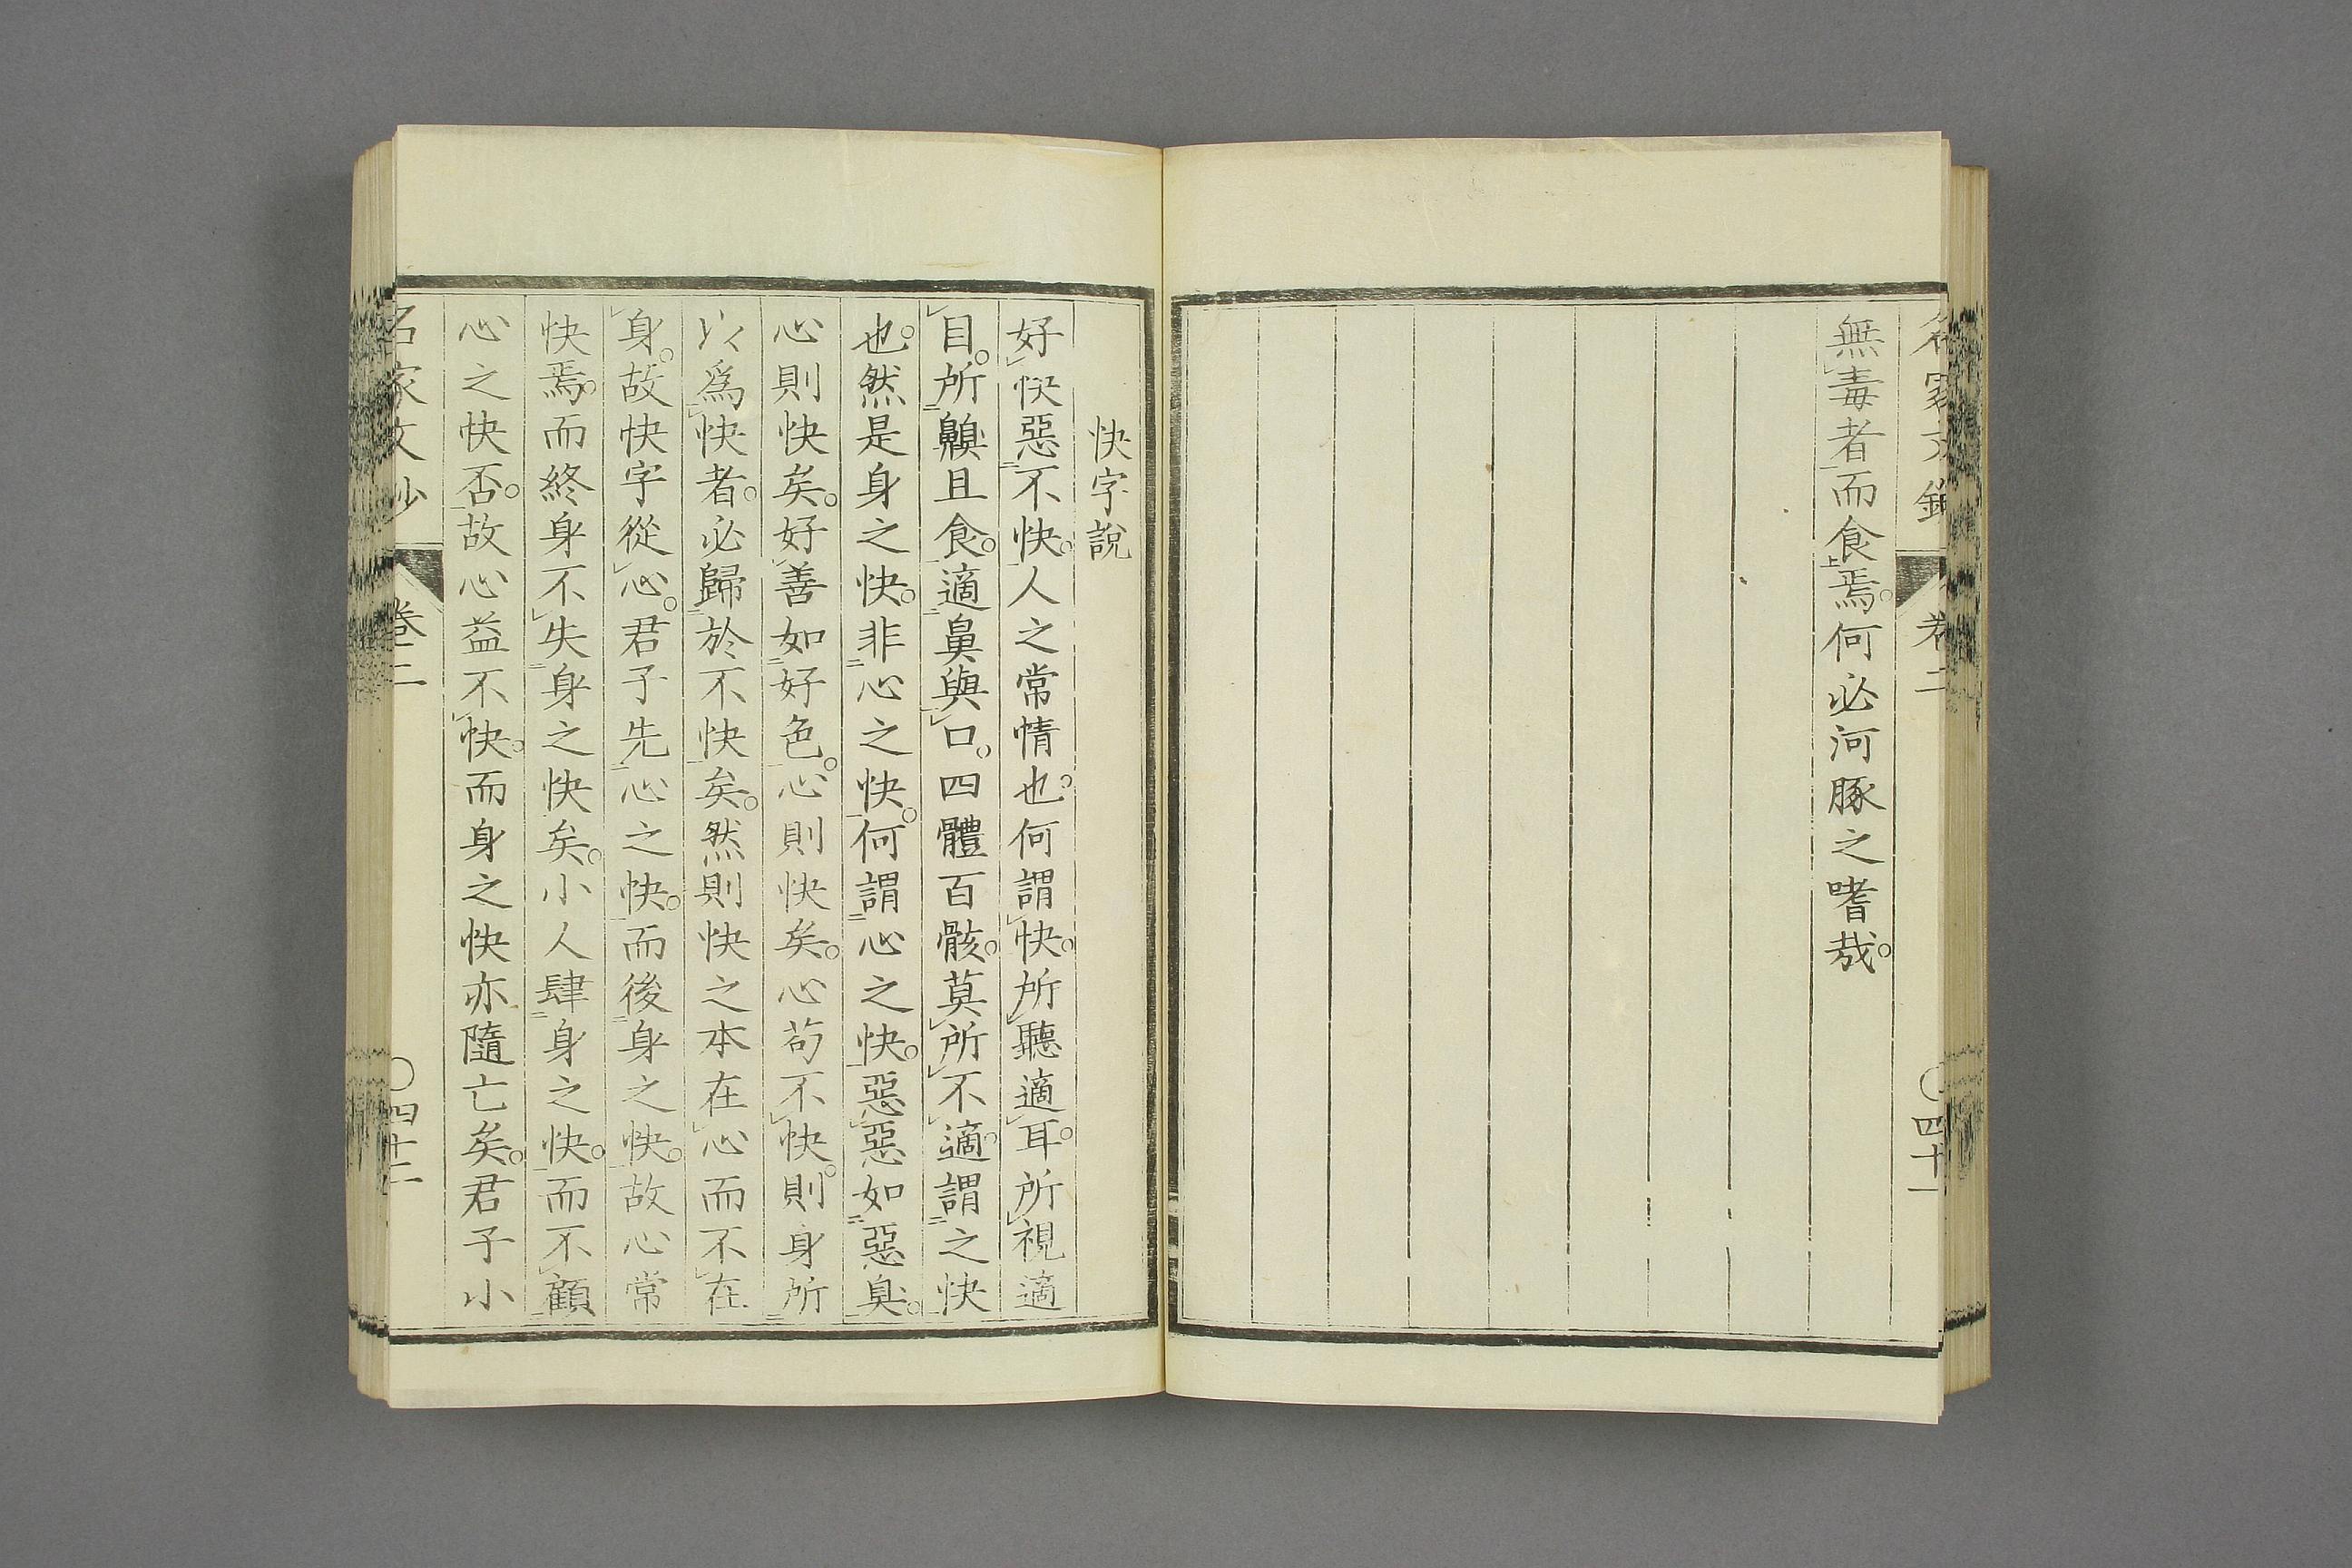 無毒者而食焉。何必河豚之嗜哉。
卷二
〇四十一
快字說
好快惡不快。人之常情也。何謂快。所聽適耳。所視適
目。所齅且食。適鼻與口。四體百骸。莫所不適。謂之快
也。然是身之快。非心之快。何謂心之快。惡惡如惡臭。
心則快矣。好善如好色。心則快矣。心苟不快。則身所
以爲快者。必歸於不快矣。然則快之本在心而不在
身。故快字從心。君子先心之快。而後身之快。故心常
快焉。而終身不失身之快矣。小人肆身之快。而不顧
心之快否。故心益不快。而身之快亦隨亡矣。君子小
名家文抄
卷二
〇四十二